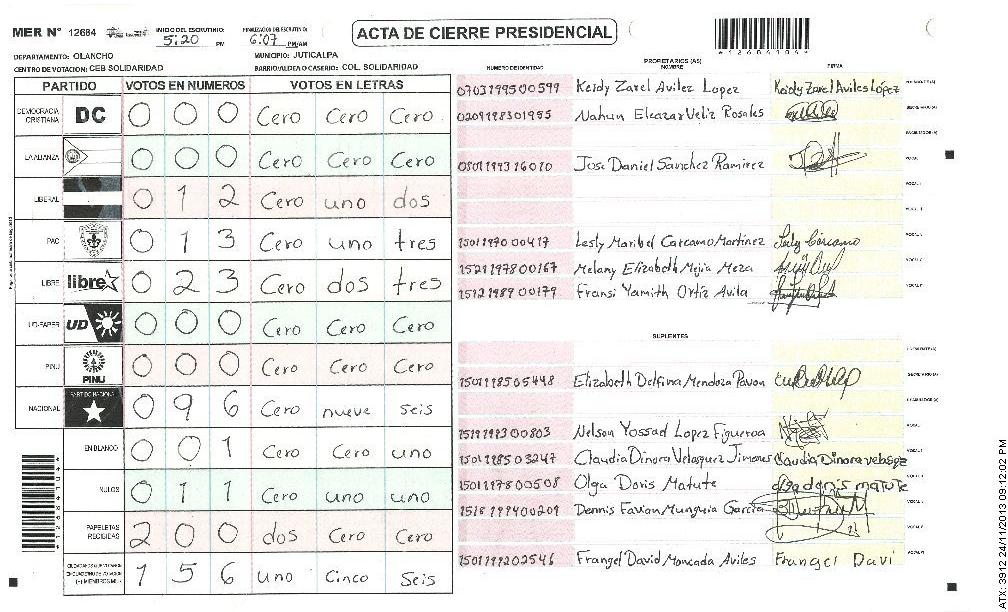 MER N° 12684 INICIO DEL ESCRUTINIO: 5:20 PM FINALIZACION DEL ESCRUTINIO: 6:07 PM/AM
ACTA DE CIERRE PRESIDENCIAL
DEPARTAMENTO: OLANCHO MUNICIPIO: JUTICALPA
CENTRO DE VOTACION: CEB SOLIDARIDAD BARRIO/ALDEA O CASERIO: COL. SOLIDARIDAD
PARTIDO VOTOS EN NUMEROS VOTOS EN LETRAS
DEMOCRACIA CRISTIANA DC 0 0 0 Cero Cero Cero
LA ALIANZA 0 0 0 Cero Cero Cero
LIBERAL 0 1 2 Cero uno dos
PAC 0 1 3 Cero uno tres
LIBRE libre 0 2 3 Cero dos tres
UD-FAPER UD 0 0 0 Cero Cero Cero
PINU PINU 0 0 0 Cero Cero Cero
NACIONAL PARTIDO NACIONAL 0 9 6 Cero nueve seis
EN BLANCO 0 0 1 Cero Cero uno
NULOS 0 1 1 Cero uno uno
PAPELETAS RECIBIDAS 2 0 0 dos Cero Cero
1 5 6 uno Cinco Seis
PROPIETARIOS (AS)
NUMERO DE IDENTIDAD NOMBRE FIRMA
0703199500599 Keidy Zarel Avilez Lopez Keidy Zarel Aviles López
0209198301955 Nahun Eleazar Veliz Rosales
0801199316010 Jose Daniel Sanchez Ramirez
1501197000417 Lesly Maribel Carcamo Martinez
1521197800167 Melany Elizabeth Mejia Meza
1512198900179 Fransi Yamith Ortiz Avila
SUPLENTES
1501198505448 Elizabeth Delfina Mendoza Pavon
1519199300803 Nelson Yossad Lopez Figueroa
1501198503247 Claudia Dinora Velasquez Jimenes
1501197800508 Olga Doris Matute
1518199400209 Dennis Favian Munguia Garcia
1501199202546 Frangel David Moncada Aviles Frangel Davi
ATX: 3912 24/11/2013 09:12:02 PM